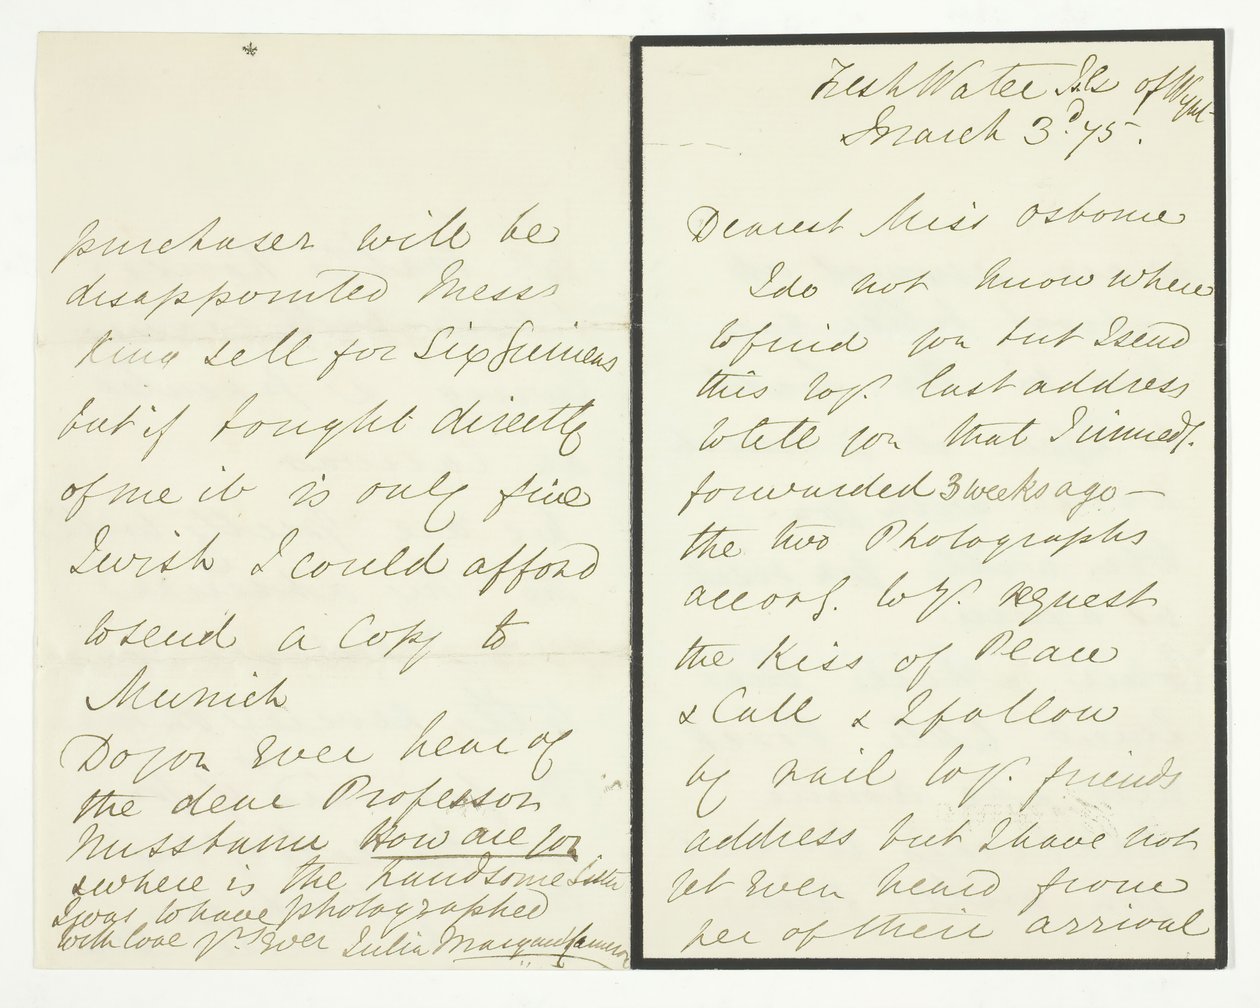 Fresh Water Isle of Wight
March 3d. 75.
Dearest Miss Osborne
I do not know where
to find you but I send
this to yr. last address
to tell you that I immedy.
forwarded 3 weeks ago —
the two Photographs
accordg. to yr. request
the Kiss of Peace
& Call & I follow
by rail to yr. friends
address but I have not
yet even heard from
her of their arrival
purchaser will be
disappointed Messrs
King sell for Six Guineas
but if bought directly
of me it is only five
I wish I could afford
to send a Copy to
Munich
Do you Ever hear of
the dear Professor
Nussbaum How are you
& where is the handsome Sister
I was to have photographed
with love yrs. Ever Julia Margaret Cameron